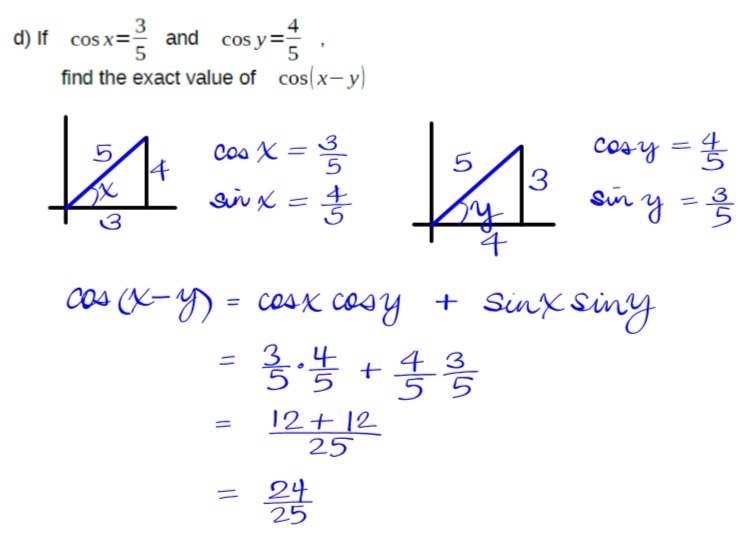 d) If cos x = 3/5 and cos y = 4/5 ,
find the exact value of cos(x − y)
5 4 x 3
cos x = 3/5
sin x = 4/5
5 3 y 4
cos y = 4/5
sin y = 3/5
cos (x − y) = cos x cos y + sin x sin y
= 3/5 · 4/5 + 4/5 3/5
= 12 + 12 / 25
= 24/25